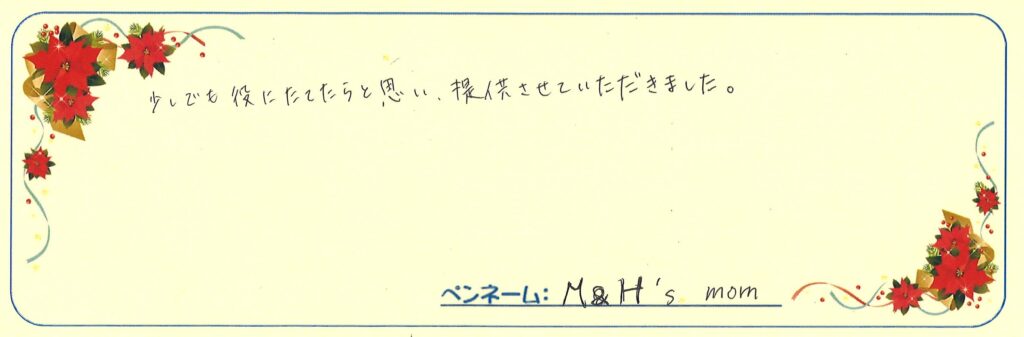 少しでも役にたてたらと思い、提供させていただきました。
ペンネーム: M&H's mom